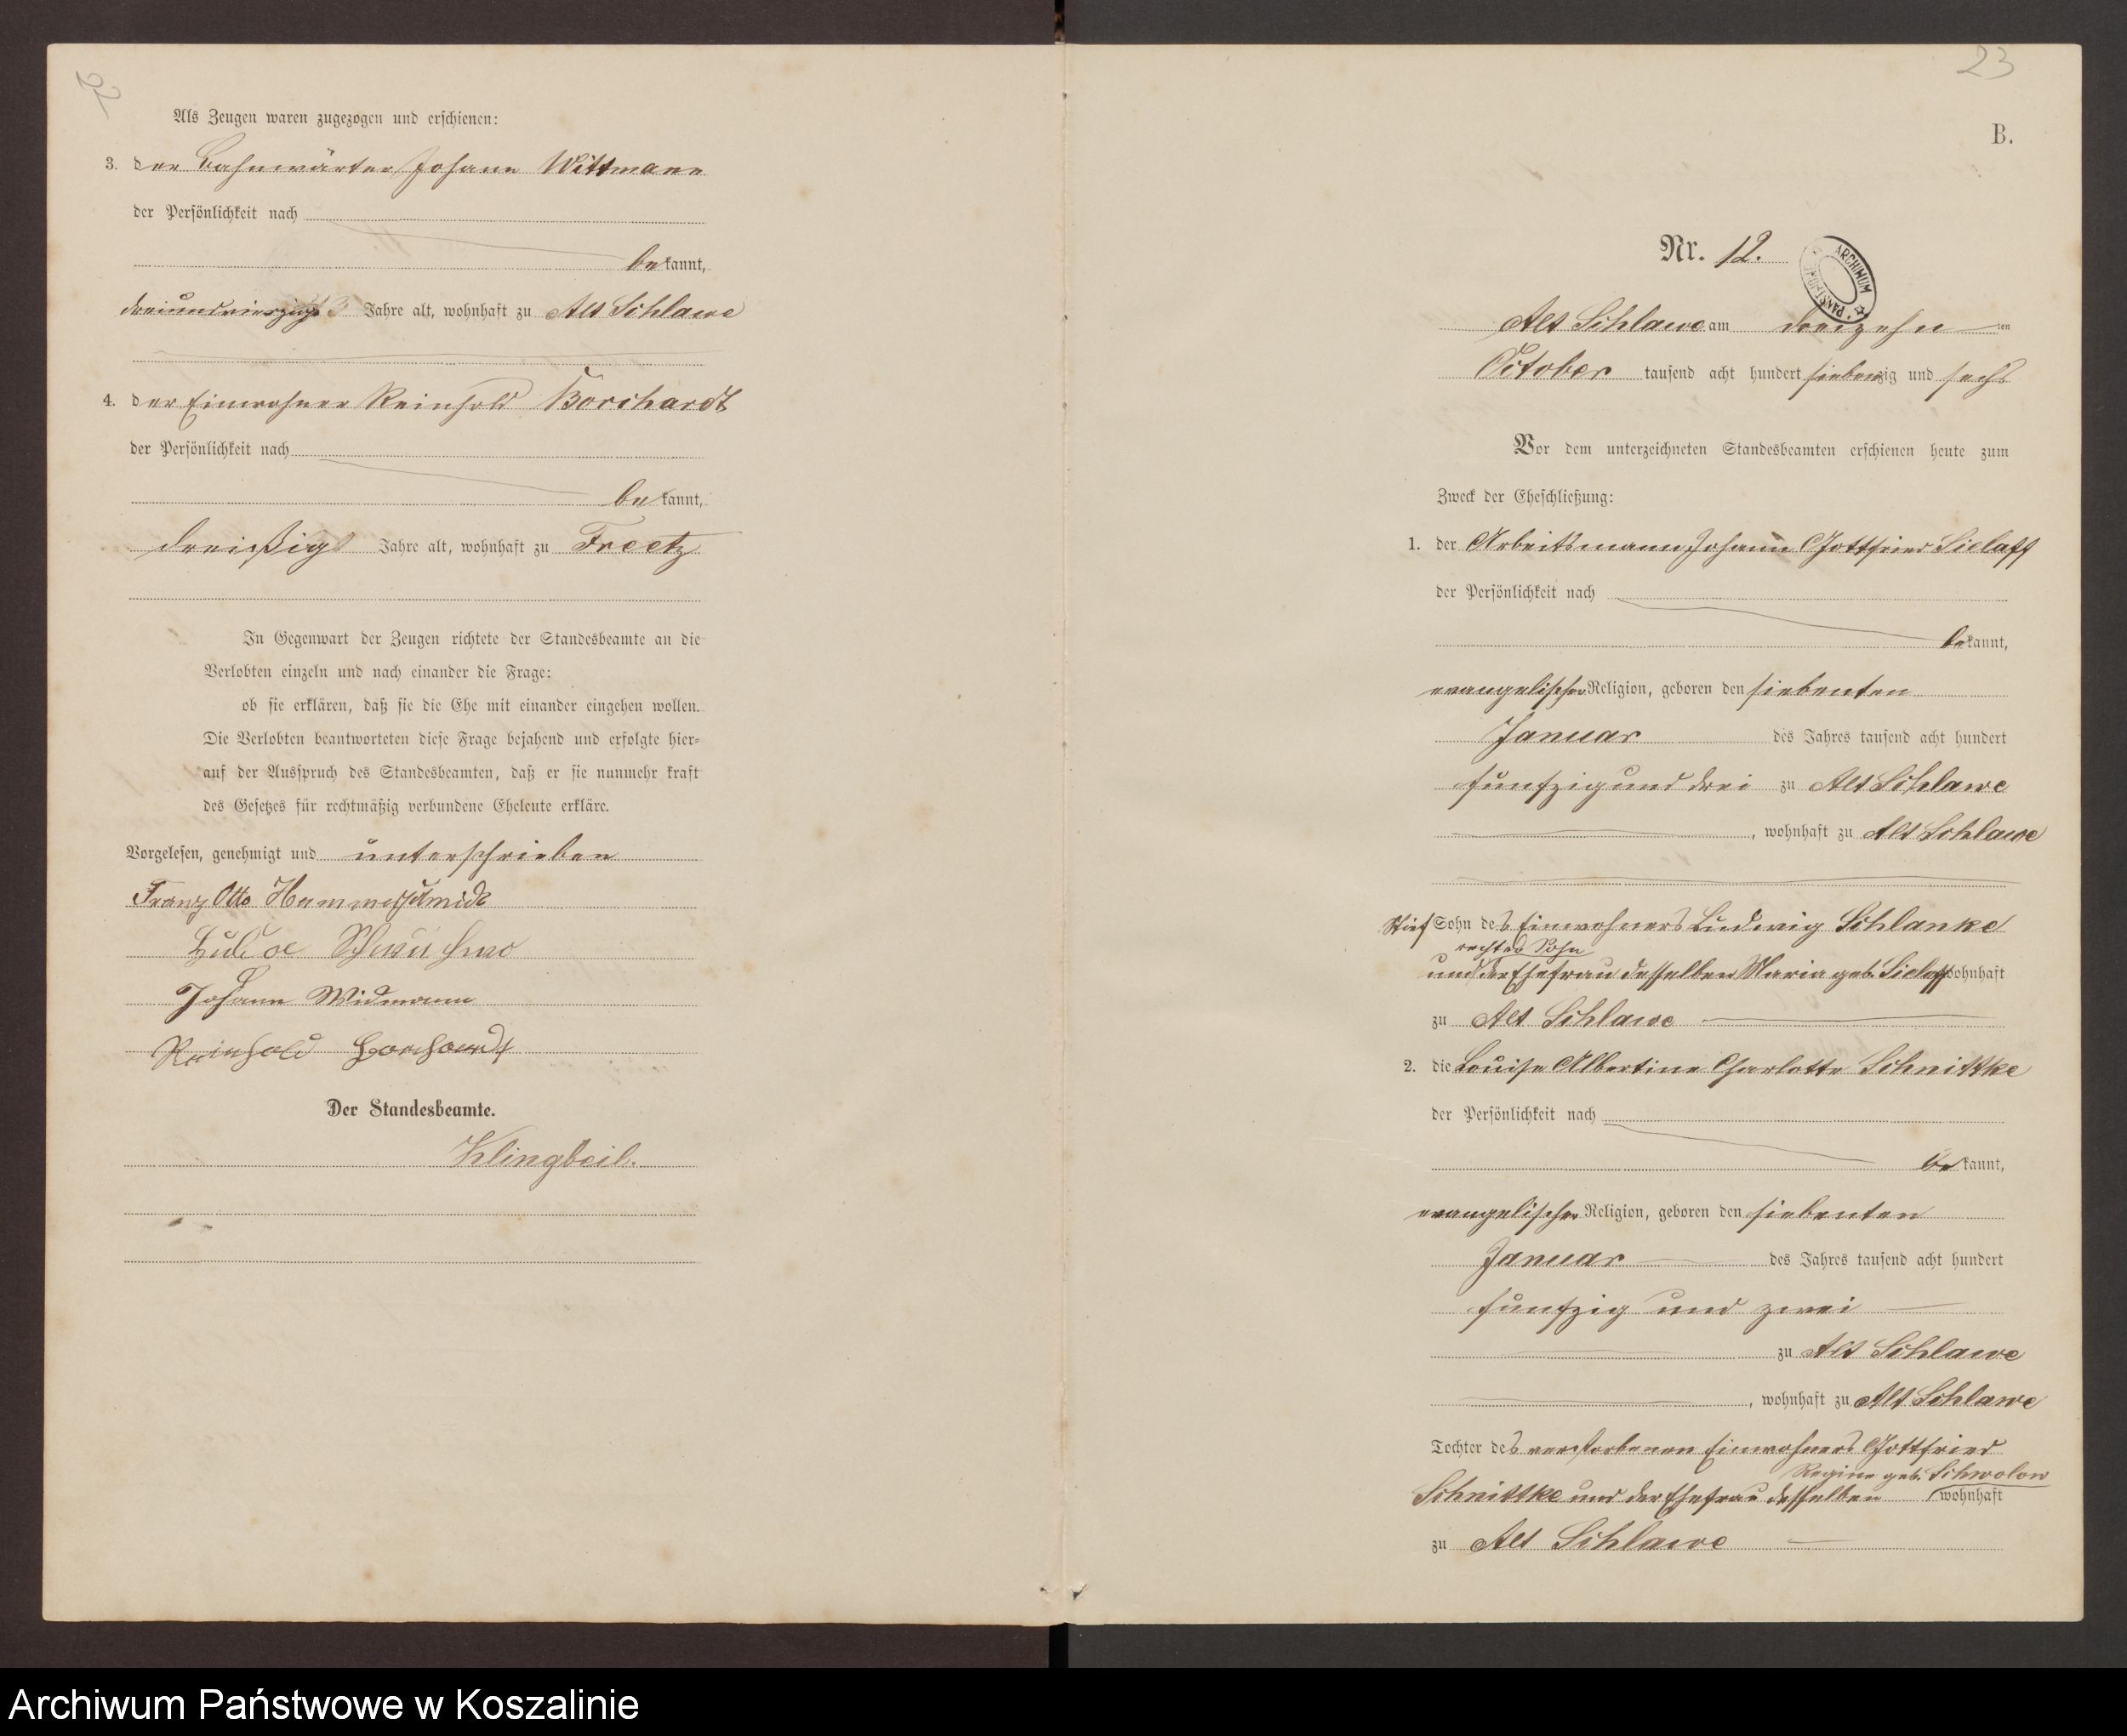 22
Als Zeugen waren zugezogen und erschienen:
3. der Bahnwärter Johann Wittmann
der Persönlichkeit nach
bekannt,
dreiundvierzig Jahre alt, wohnhaft zu Alt Schlawe
4. der Einwohner Reinhold Borchardt
der Persönlichkeit nach
bekannt,
dreißig Jahre alt, wohnhaft zu Freetz
In Gegenwart der Zeugen richtete der Standesbeamte an die
Verlobten einzeln und nach einander die Frage:
ob sie erklären, daß sie die Ehe mit einander eingehen wollen.
Die Verlobten beantworteten diese Frage bejahend und erfolgte hier-
auf der Ausspruch des Standesbeamten, daß er sie nunmehr kraft
des Gesetzes für rechtmäßig verbundene Eheleute erkläre.
Vorgelesen, genehmigt und unterschrieben
Franz Otto Hammerschmidt
Johann Widmann
Reinhold Borchardt
Der Standesbeamte.
Klingbeil.
23
B.
Nr. 12.
ARCHIWUM PAŃSTWOWE
Alt Schlawe am dreizehn ten
October tausend acht hundert siebenzig und sechs
Vor dem unterzeichneten Standesbeamten erschienen heute zum
Zweck der Eheschließung:
1. der Arbeitsmann Johann Gottfried Sielaff
der Persönlichkeit nach
bekannt,
evangelischer Religion, geboren den siebenten
Januar des Jahres tausend acht hundert
funfzig und drei zu Alt Schlawe
, wohnhaft zu Alt Schlawe
Stief Sohn des Einwohners Ludwig Schlanke
rechter Sohn
und der Ehefrau desselben Maria geb. Sielaff wohnhaft
zu Alt Schlawe
2. die Louise Albertine Charlotte Schnittke
der Persönlichkeit nach
bekannt,
evangelischer Religion, geboren den siebenten
Januar des Jahres tausend acht hundert
funfzig und zwei
zu Alt Schlawe
, wohnhaft zu Alt Schlawe
Tochter des verstorbenen Einwohners Gottfried
Regine geb. Schwolow
Schnittke und der Ehefrau desselben wohnhaft
zu Alt Schlawe
Archiwum Państwowe w Koszalinie